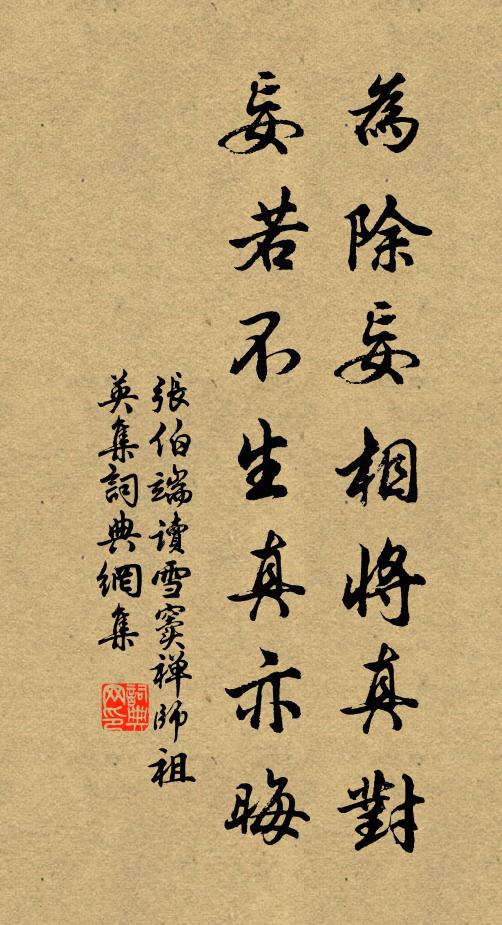 為除妄相將真對
妄若不生真亦晦
張伯端讀雪竇禅師祖
英集詞典網集
詞典
网印